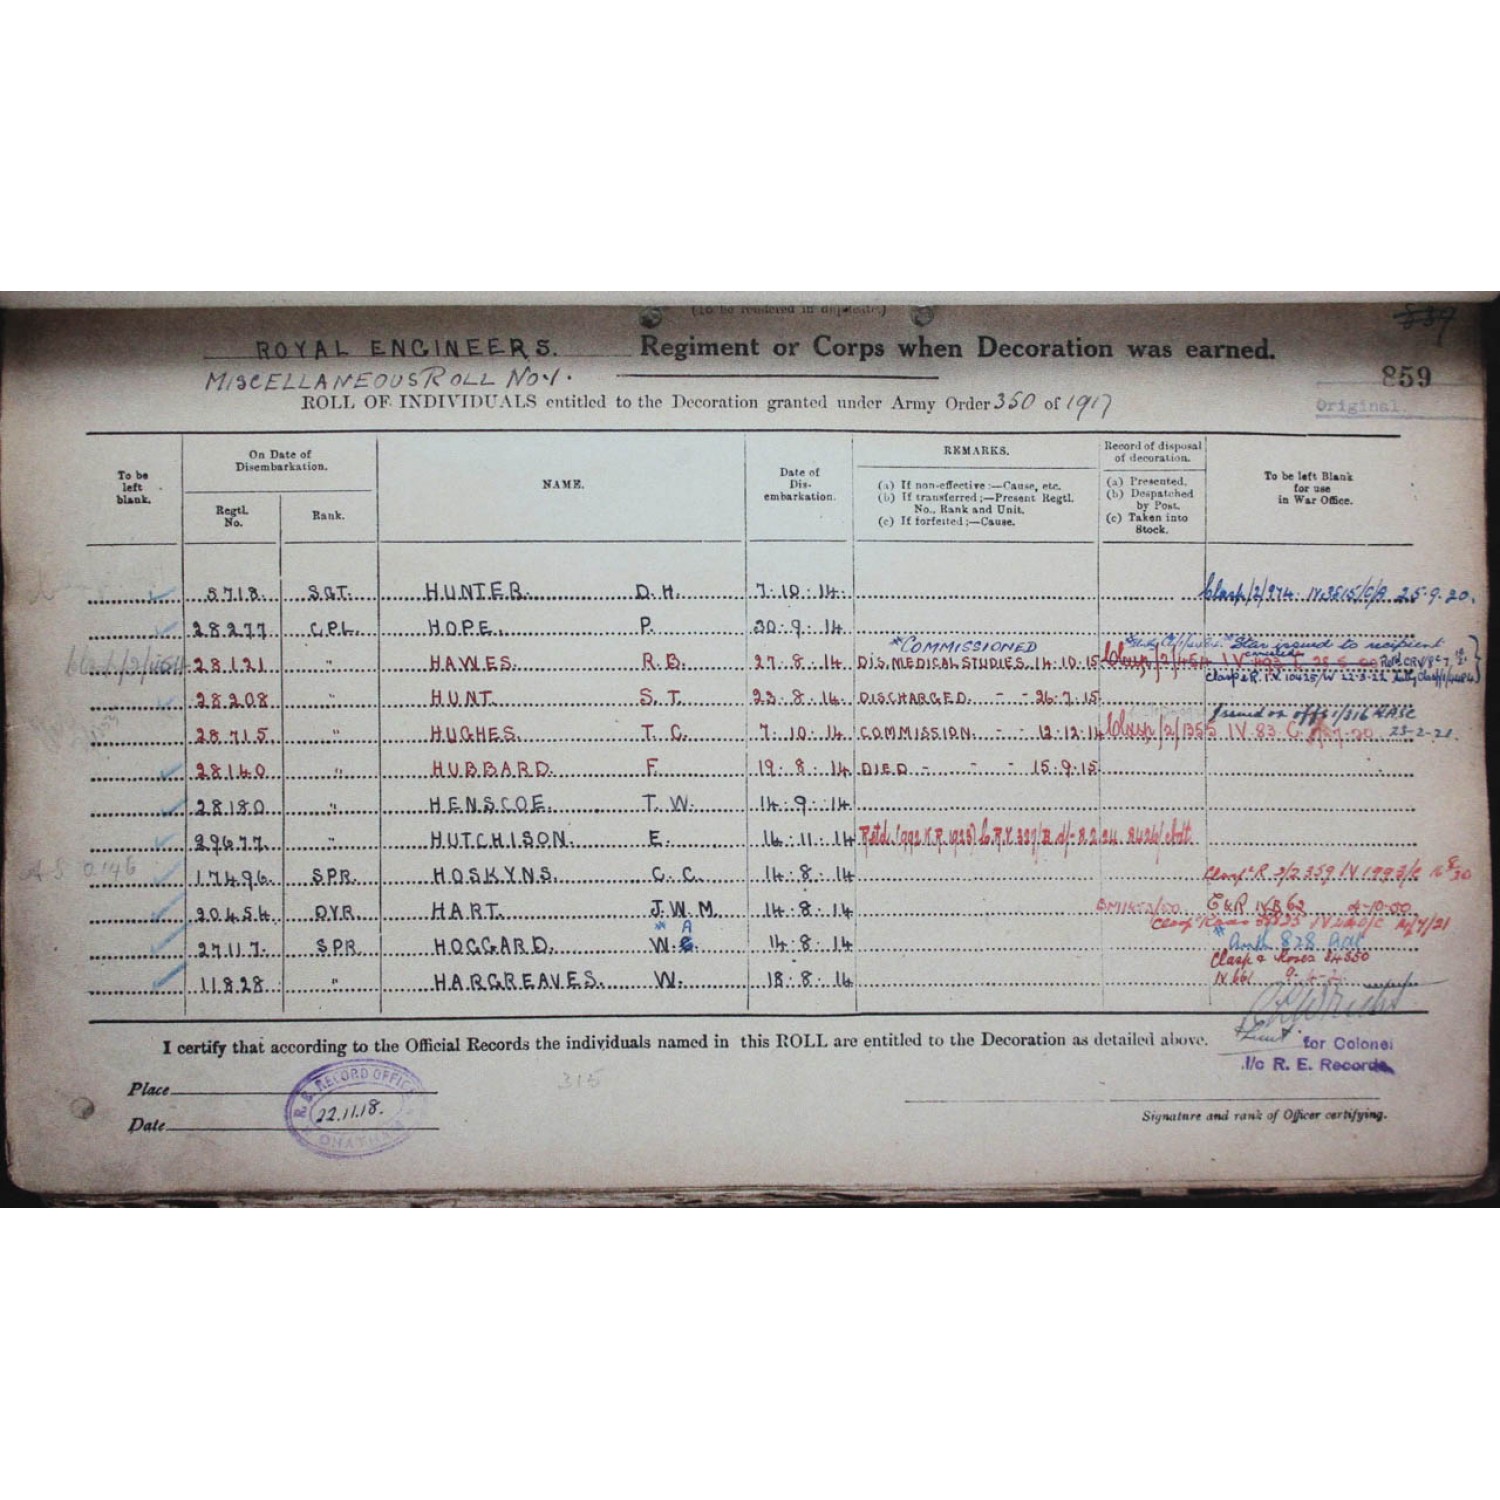 (To be rendered in duplicate.)
839
ROYAL ENGINEERS. Regiment or Corps when Decoration was earned.
MISCELLANEOUS ROLL No 1.
859
ROLL OF INDIVIDUALS entitled to the Decoration granted under Army Order 350 of 1917
Original.
To be left blank.
On Date of Disembarkation.
Regtl. No.
Rank.
NAME.
Date of Dis-embarkation.
REMARKS.
(a) If non-effective:—Cause, etc.
(b) If transferred;—Present Regtl. No., Rank and Unit.
(c) If forfeited;—Cause.
Record of disposal of decoration.
(a) Presented.
(b) Despatched by Post.
(c) Taken into Stock.
To be left Blank for use in War Office.
8718. SGT. HUNTER. D.H. 7.10.14. Clasp/2/974 IV.3515/C/A 25.9.20.
28277 CPL. HOPE. P. 30.9.14
*COMMISSIONED Star issued to recipient
28121 " HAWES. R.B. 27.8.14 DIS. MEDICAL STUDIES. 14.10.15 Clasp/2/
28208 " HUNT. S.T. 23.8.14. DISCHARGED. - - 26.7.15
Issued on offs 1/316 RASC
28715 " HUGHES. T.C. 7.10.14 COMMISSION. - - 12.12.14 Clasp/2/1355 IV 83 C 23-2-21.
28140 " HUBBARD. F. 19.8.14 DIED - - - 15.9.15
28180 " HENSCOE. T.W. 14.9.14
29677. " HUTCHISON. E. 14.11.14
17496. SPR. HOSKYNS. C.C. 14.8.14 Clasp & R 2/2359 IV 1993/C
20454 DVR. HART. J.W.M. 14.8.14 C&R IV.B 62 4-10-50
* A
27117. SPR. HOGGARD. W.C. 14.8.14 * Auth 828 Adt
Clasp & Roses 84350
11828 " HARGREAVES. W. 18.8.14 IV 661
I certify that according to the Official Records the individuals named in this ROLL are entitled to the Decoration as detailed above.
Lieut for Colonel
I/c R. E. Records.
315
Place
R.E. RECORD OFFICE
22.11.18.
CHATHAM
Date
Signature and rank of Officer certifying.